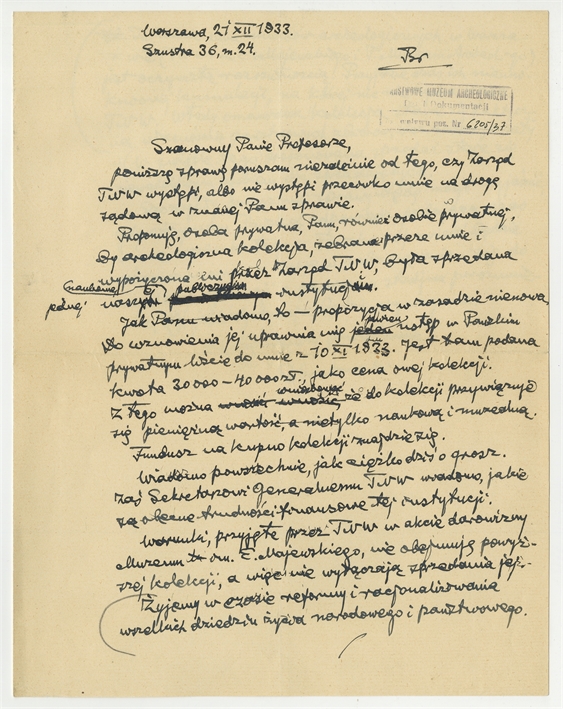 Warszawa, 21 XII 1933.
Szustra 36, m. 24.
Br
PAŃSTWOWE MUZEUM ARCHEOLOGICZNE
Dział Dokumentacji
poz. Nr 6205/37
Szanowny Panie Profesorze,
poniższą sprawę poruszam niezależnie od tego, czy Zarząd
TNW wystąpi, albo nie wystąpi przeciwko mnie na drogę
sądową w znanej Panu sprawie.
Proponuję, osoba prywatna, Panu, również osobie prywatnej,
by archeologiczna kolekcja, zebrana przeze mnie i
wypożyczona mi przez Zarząd TNW, była sprzedana
naukowej
pewnej naszej instytucji.
Jak Panu wiadomo, to – propozycja w zasadzie nienowa.
pewien
Do wznowienia jej uprawnia mię jeden ustęp w Pańskim
prywatnym liście do mnie z 10 XI 1933. Jest tam podana
kwota 30000 – 40000 zł., jako cena owej kolekcji.
wnioskować
Z tego można że do kolekcji przywiązuje
się pieniężną wartość, a nietylko naukową i muzealną.
Fundusz na kupno kolekcji znajdzie się.
Wiadomo powszechnie, jak ciężko dziś o grosz.
zaś Sekretarzowi Generalnemu TNW wiadomo, jakie
są obecne trudności finansowe tej instytucji.
Warunki, przyjęte przez TNW w akcie darowizny
Muzeum im. E. Majewskiego, nie obejmują powyż-
szej kolekcji, a więc nie wyłączają sprzedania jej.
Żyjemy w czasie reformy i racjonalizowania
wszelkich dziedzin życia narodowego i państwowego.